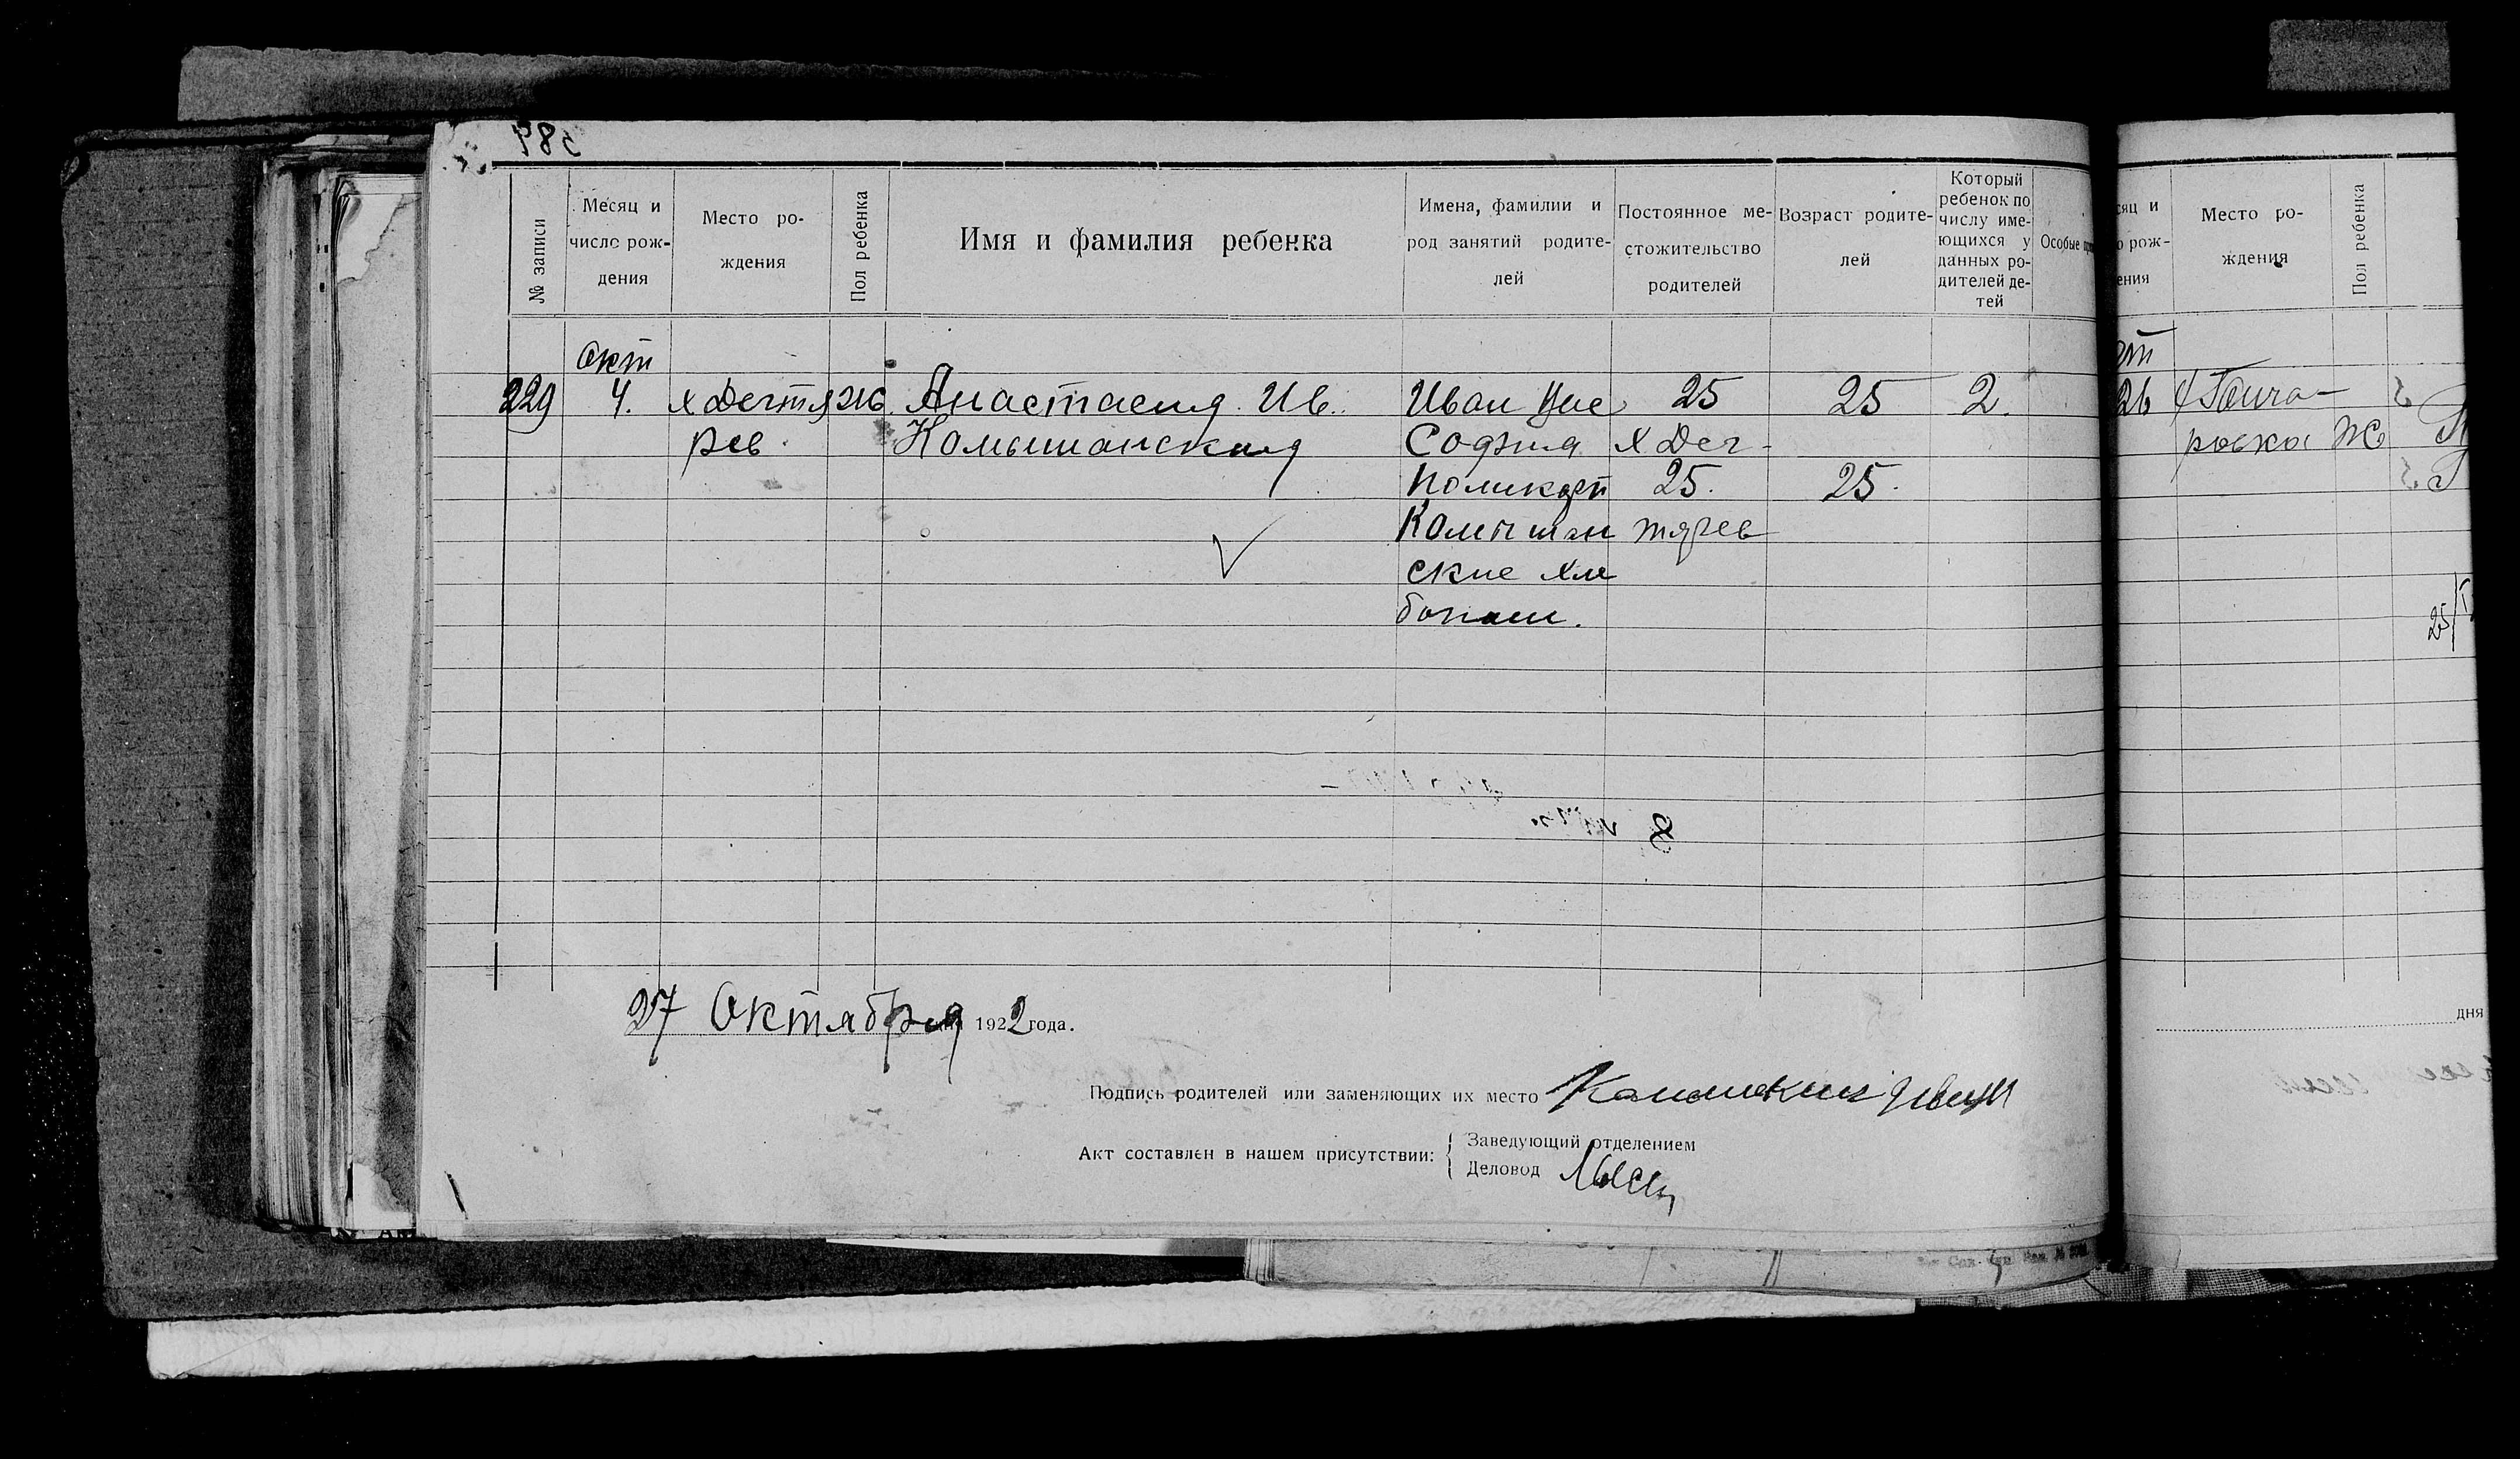 № записи
Месяц и число рождения
Место рождения
Пол ребенка
Имя и фамилия ребенка
Имена, фамилии и род занятий родителей
Постоянное местожительство родителей
Возраст родителей
Который ребенок по числу имеющихся у данных родителей детей
Особые
Окт
229 4. х Дегтя Ж. Анастасия Ив. Иван 25 25 2.
рев. Комышанская София х Дег-
Поликарп 25. 25.
Комышан тярев
ские хле
бопаш.
27 Октября дня 1922 года.
Подпись родителей или заменяющих их место
Акт составлен в нашем присутствии:
Заведующий отделением
Деловод
сяц и
о рож-
ения
Место рождения
Пол ребенка
26 х Гонча-
ровка Ж
25
дня